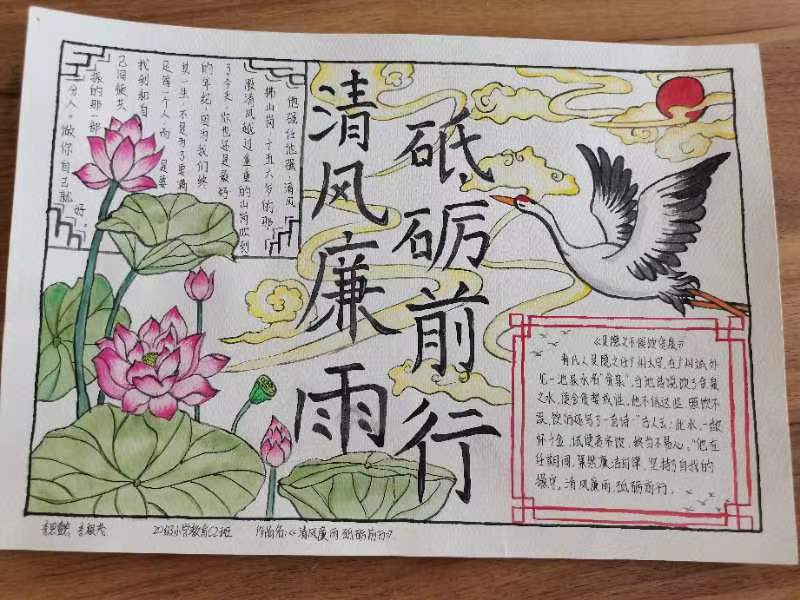 他强任他强,清风
拂山岗。十五六岁的那
股清风越过重重的山岗吹到
了今天。你也还是最好
的年纪,因为我们终
其一生,不是为了要满
足每一个人,而是要
找到和自
己同频共
振的那一部
分人。做你自己就好。
清风廉雨
砥砺前行
《吴隐之不惧饮贪泉》
有人吴隐之任广州太守,在广州城外
一池泉水名"贪泉"。当地传说饮了贪泉
之水,便会贪婪成性。他不信这些,照饮不
误,饮后还写了一首诗:"古人云此水,一歃
怀千金。试使夷齐饮,终当不易心。"他在
任期间,果然廉洁自律,坚持了自我的
操守。清风廉雨,砥砺前行。
20级小学教育C2班 作品名:《清风廉雨 砥砺前行》